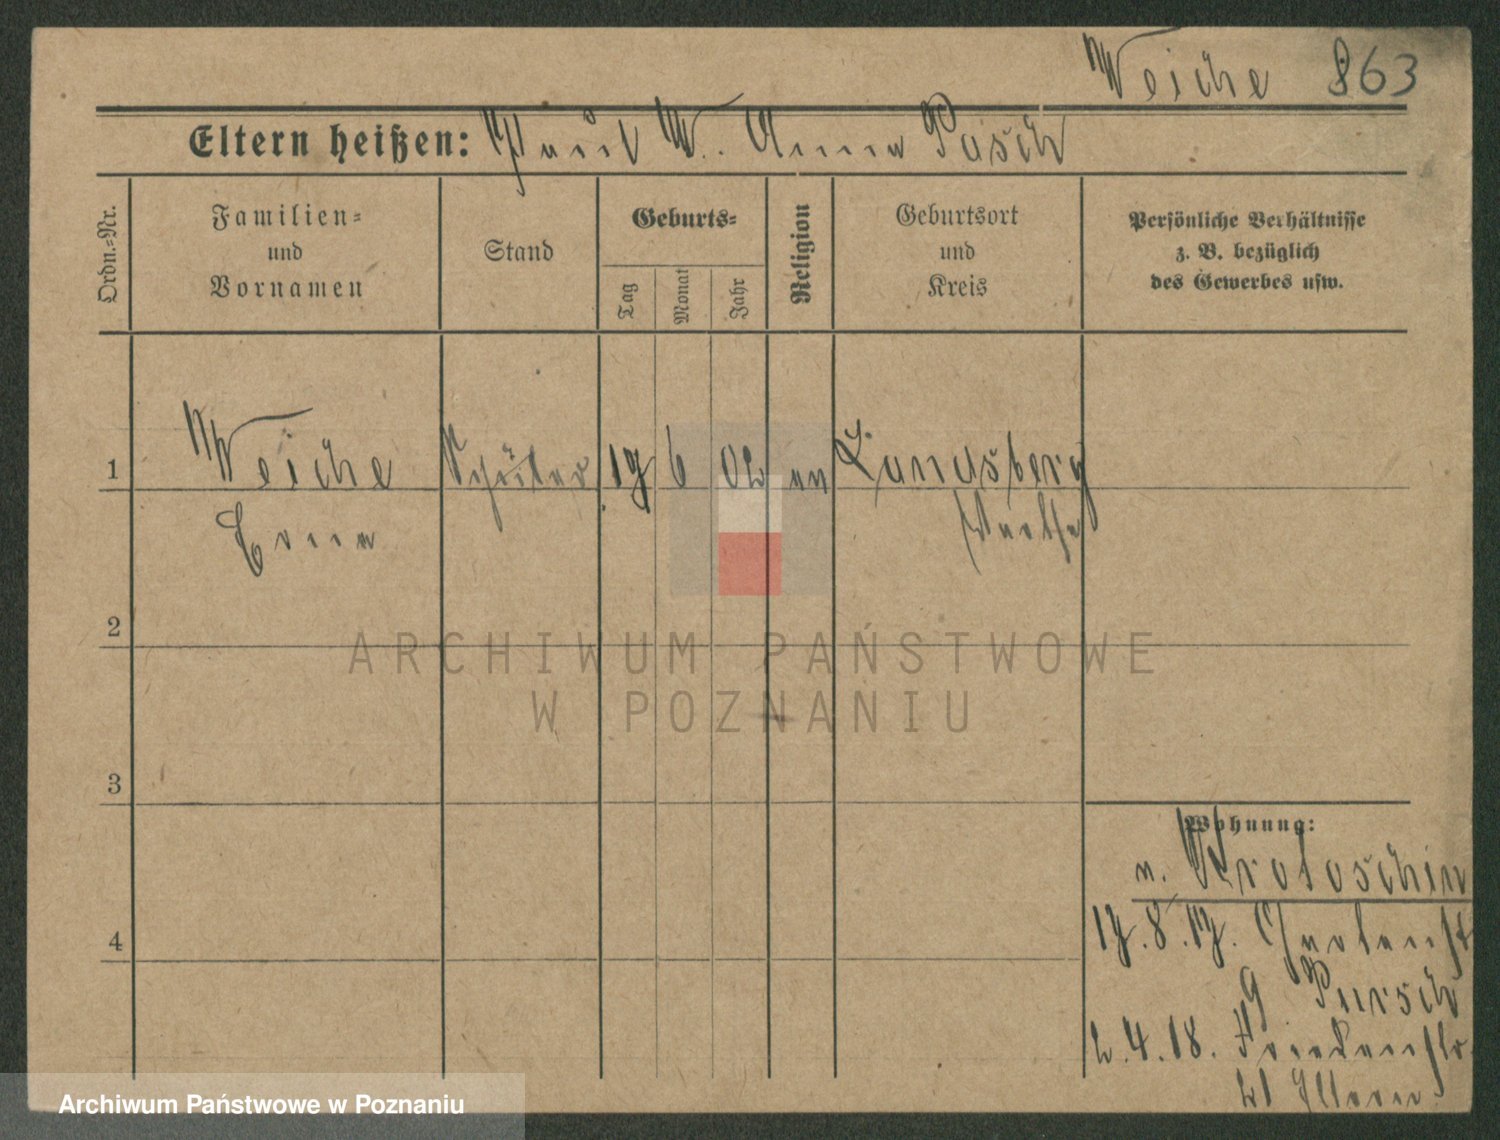 Weiche 863
Eltern heißen: Paul W. Anna Pasch
Ordn.-Nr.
Familien-
und
Vornamen
Stand
Geburts-
Tag
Monat
Jahr
Religion
Geburtsort
und
Kreis
Persönliche Verhältnisse
z. B. bezüglich
des Gewerbes usw.
1 Weiche Schüler 19 6 02 ev Landsberg
Erna Warthe
2
3
4
ARCHIWUM PAŃSTWOWE
W POZNANIU
Wohnung:
n. Krotoschin
17.8.17. Gartenstr
9 Pursch
2.4.18. Friedenstr.
21
Archiwum Państwowe w Poznaniu